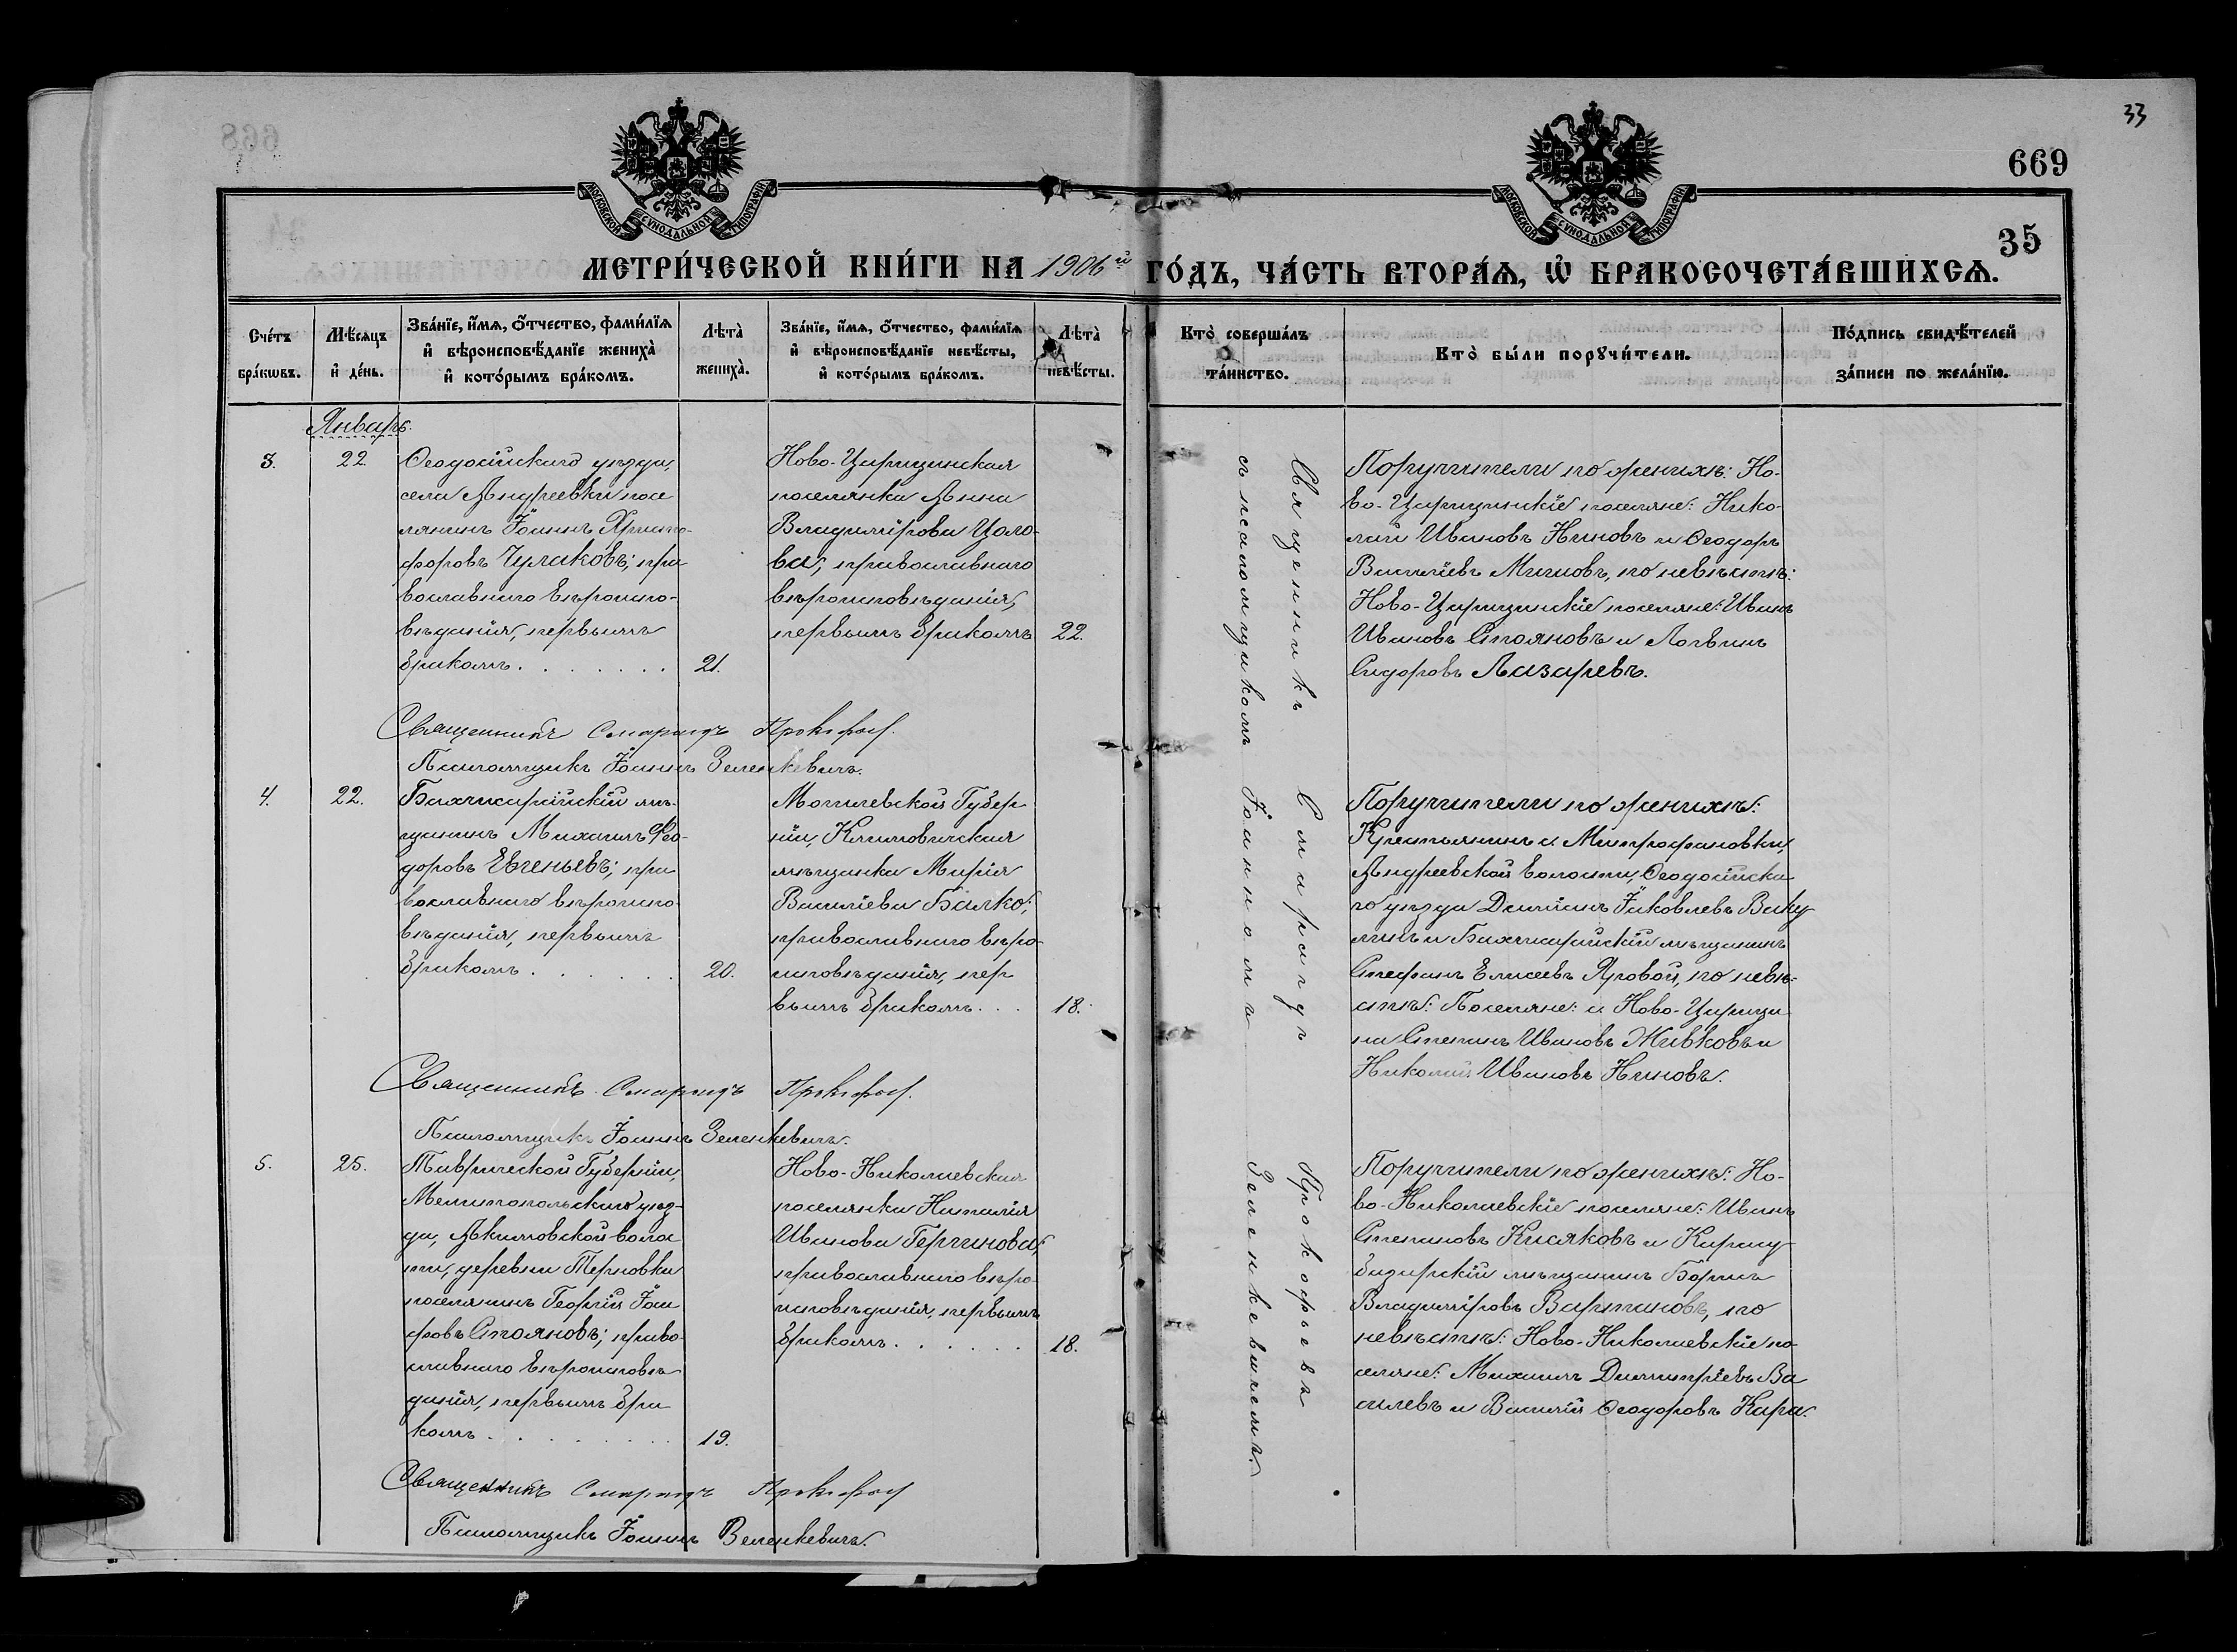 33
669
35
МОСКОВСКОЙ СУНОДАЛЬНОЙ ТИПОГРАФІИ
МОСКОВСКОЙ СУНОДАЛЬНОЙ ТИПОГРАФІИ
МЕТРИ́ЧЕСКОЙ КНИ́ГИ НА 1906й ГО́ДЪ, ЧА́СТЬ ВТОРА́Я, Ѡ҆ БРАКОСОЧЕТА́ВШИХСЯ.
Сче́тъ
бра́кѡвъ.
Мѣ́сяцъ
и҆ де́нь.
Зва́нїе, и҆́мя, ѻ҆́тчество, фами́лїя
и҆ вѣроисповѣ́данїе жениха̀
и҆ кото́рымъ бра́комъ.
Лѣта̀
жениха̀.
Зва́нїе, и҆́мя, ѻ҆́тчество, фами́лїя
и҆ вѣроисповѣ́данїе невѣ́сты,
и҆ кото́рымъ бра́комъ.
Лѣта̀
невѣ́сты.
Кто̀ соверша́лъ
та́инство.
Кто̀ бы́ли порꙋчи́тели.
По́дпись свидѣ́телей
за́писи по жела́нїю.
Январь.
3.
22.
Ѳеодосійскаго уѣзда,
села Андреевки посе
лянинъ Іоаннъ Христо-
форовъ Чулаковъ; пра
вославнаго вѣроиспо-
вѣданія, первымъ
бракомъ . . . . . . .
21.
Ново-Царицинская
поселянка Анна
Владимірова Цоло-
ва; православнаго
вѣроисповѣданія,
первымъ бракомъ
22.
Поручители по женихѣ: Но-
во-Царицинскіе поселяне: Нико-
лай Ивановъ Ниновъ и Ѳеодоръ
Василіевъ Мичновъ, по невѣстѣ:
Ново-Царицинскіе поселяне: Иванъ
Ивановъ Стояновъ и Логвинъ
Сидоровъ Лазаревъ.
Священникъ Смарагдъ Прокофьев
Псаломщикъ Іоаннъ Зеленкевичъ.
4.
22.
Бахчисарайскій мѣ-
щанинъ Михаилъ Фео-
доровъ Евгеньевъ; пра
вославнаго вѣроиспо-
вѣданія, первымъ
бракомъ . . . . . .
20.
Могилевской Губер
ніи, Климовичская
мѣщанка Марія
Василіева Балко;
православнаго вѣро-
исповѣданія, пер
вымъ бракомъ . . .
18.
Поручители по женихѣ:
Крестьянинъ с. Митрофановки,
Андреевской волости, Ѳеодосійска
го уѣзда Даміанъ Іаковлевъ Ваку
линъ и Бахчисарайскій мѣщанинъ
Стефанъ Елисеевъ Яровой, по невѣ-
стѣ: Поселяне: с. Ново-Царици
на Степанъ Ивановъ Живковъ и
Николай Ивановъ Ниновъ.
Священникъ Смарагдъ Прокофьев
Псаломщикъ Іоаннъ Зеленкевичъ.
5.
25.
Таврической Губерніи,
Мелитопольскаго уѣз-
да, Акимовской волос
ти, деревни Терновки
поселянинъ Георгій
Стояновъ; право
славнаго вѣроисповѣ
данія, первымъ бра
комъ . . . . . . . . .
19.
Ново-Николаевская
поселянка Наталія
Иванова Гергинова;
православнаго вѣро-
исповѣданія, первымъ
бракомъ . . . . . . .
18.
Поручители по женихѣ: Но-
во-Николаевскіе поселяне: Иванъ
Степановъ Кисяковъ и Карасу
базарскій мѣщанинъ Борисъ
Владиміровъ Вартановъ, по
невѣстѣ: Ново-Николаевскіе по-
селяне: Михаилъ Димитріевъ Ва
силевъ и Василій Ѳеодоровъ Кара.
Священникъ Смарагдъ Прокофьев
Псаломщикъ Іоаннъ Зеленкевичъ.
Священникъ Смарагдъ Прокофьевъ
съ псаломщикомъ Іоанномъ Зеленкевичемъ.